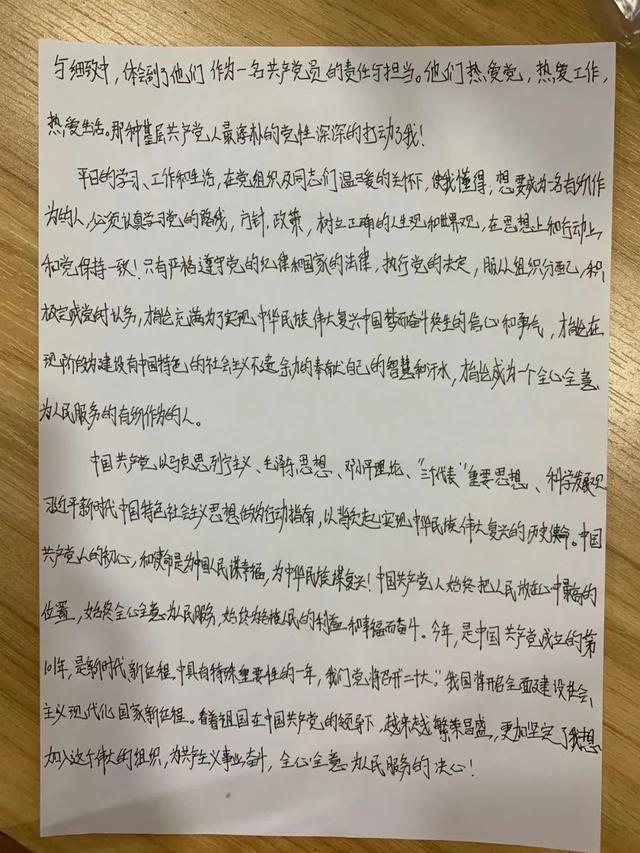 与细致中，体会到了他们作为一名共产党员的责任与担当。他们热爱党，热爱工作，
热爱生活。那种基层共产党人最淳朴的党性深深的打动了我！
平日的学习、工作和生活，在党组织及同志们温暖的关怀下，使我懂得，想要成为一名有所作
为的人，必须认真学习党的路线，方针，政策，树立正确的人生观和世界观，在思想上和行动上，
和党保持一致！只有严格遵守党的纪律和国家的法律，执行党的决定，服从组织分配，积
极完成党的任务，才能充满为了实现中华民族伟大复兴中国梦而奋斗终生的信心和勇气，才能在
现阶段为建设有中国特色的社会主义不遗余力的奉献自己的智慧和汗水，才能成为一个全心全意
为人民服务的有所作为的人。
中国共产党以马克思列宁主义、毛泽东思想、邓小平理论、“三个代表”重要思想、科学发展观
习近平新时代中国特色社会主义思想作为行动指南，以背负起实现中华民族伟大复兴的历史使命。中国
共产党人的初心，和使命是为中国人民谋幸福，为中华民族谋复兴！中国共产党人始终把人民放在心中最高的
位置，始终全心全意为人民服务，始终为人民的利益和幸福而奋斗。今年，是中国共产党成立的第
101年，是新时代，新征程中具有特殊重要性的一年，我们党将召开“二十大”，我国将开启全面建设社会
主义现代化国家新征程。看着祖国在中国共产党的领导下，越来越繁荣昌盛，更加坚定了我想
加入这个伟大的组织，为共产主义事业奋斗，全心全意为人民服务的决心！